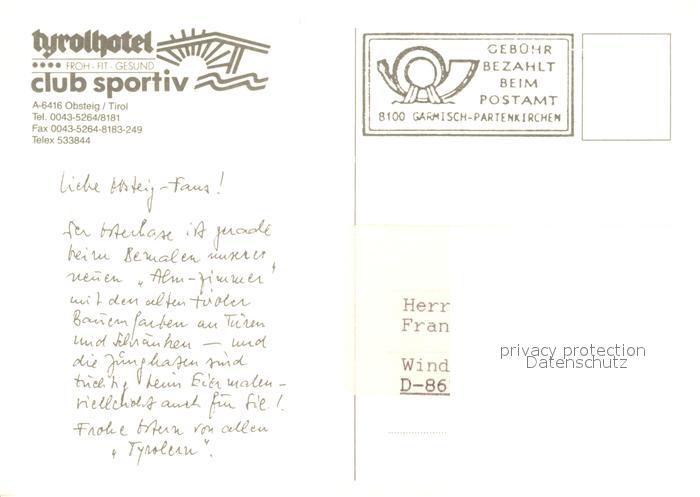 tyrolhotel
FROH - FIT - GESUND
club sportiv
A-6416 Obsteig / Tirol
Tel. 0043-5264/8181
Fax 0043-5264-8183-249
Telex 533844
GEBÜHR
BEZAHLT
BEIM
POSTAMT
8100 GARMISCH-PARTENKIRCHEN
Liebe Obsteig-Fans!
Der Osterhase ist gerade
beim Bemalen unserer
neuen "Alm-Zimmer"
mit den alten Tiroler
Bauernfarben an Türen
und Schränken – und
die Junghasen sind
tüchtig beim Eiermalen –
vielleicht auch für Sie!
Frohe Ostern von allen
"Tyrolern".
Herr
Fran
Wind
D-86
privacy protection
Datenschutz